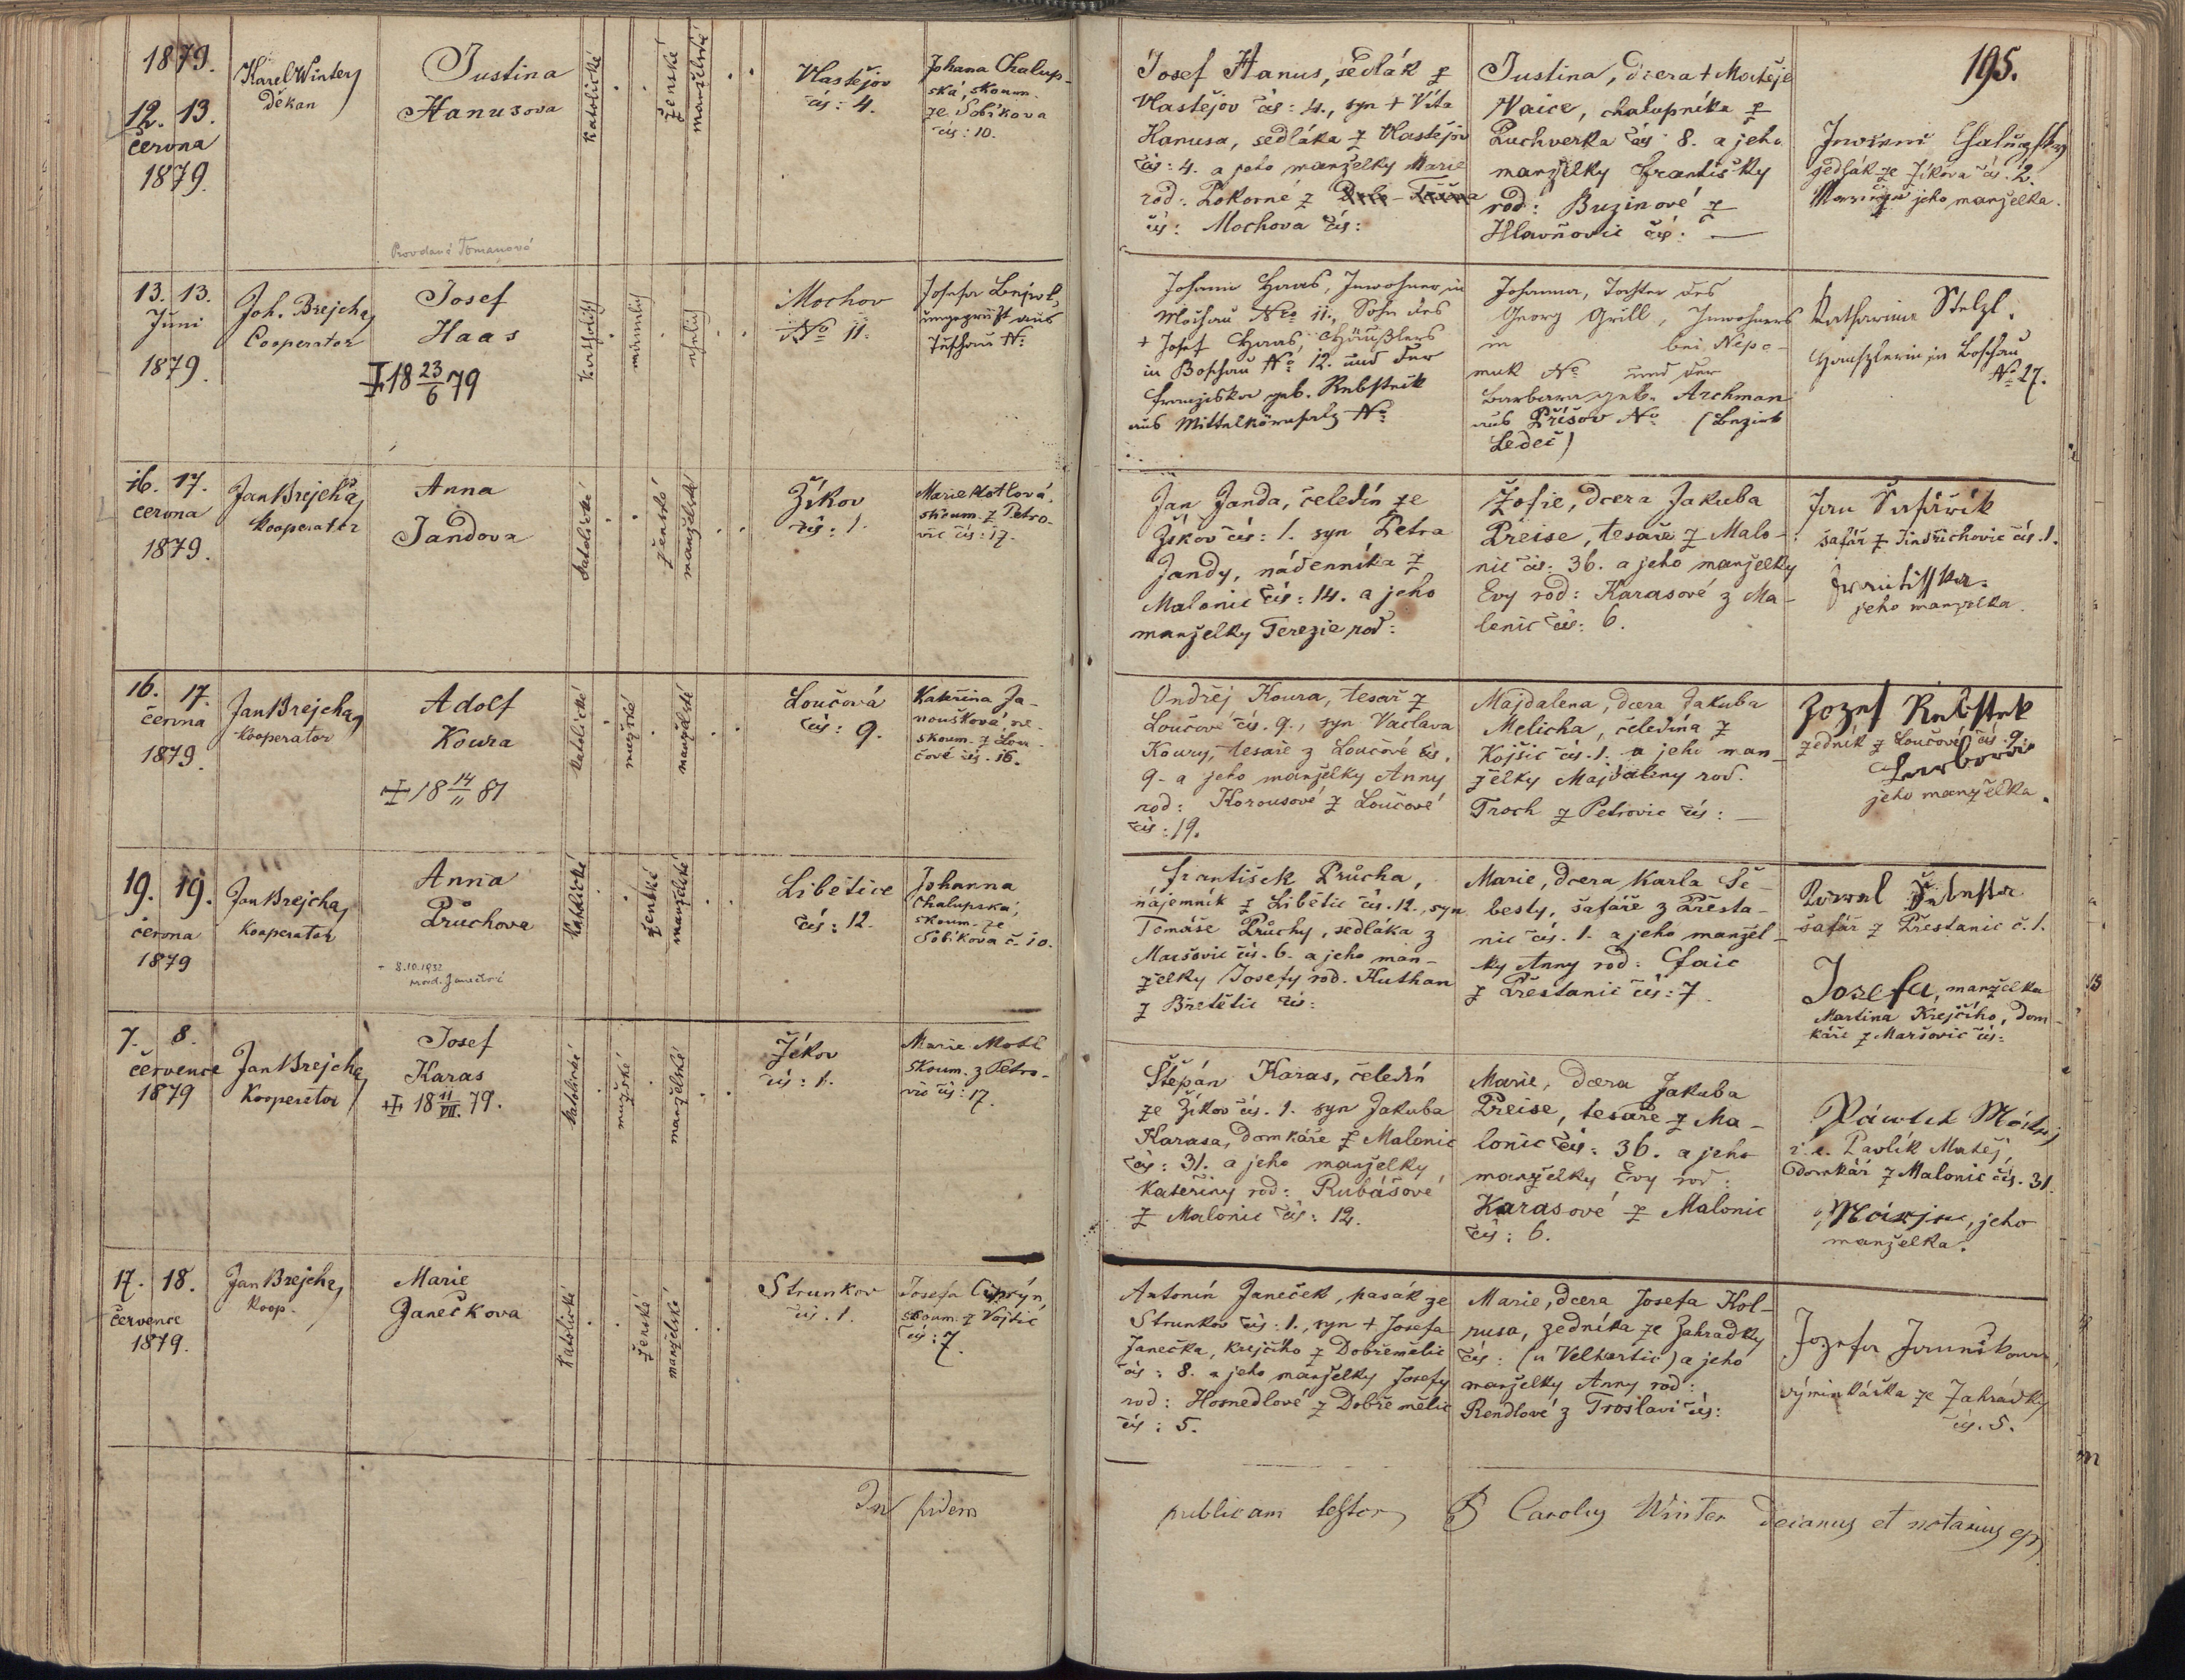 1879.
195.
12. 13.
června
1879.
Karel Winter
děkan
Justina
Hanusova
Provdaná Tomanová
katolické
ženské
manželské
Vlastějov
čís: 4.
Johana Chalup-
ská, skoum.
ze Sobíkova
čís: 10.
Josef Hanus, sedlák z
Vlastějov čís: 4., syn + Víta
Hanusa, sedláka z Vlastějov
čís: 4. a jeho manželky Marie
rod: Pokorné z
čís: Mochova čís:
Justina, dcera + Matěje
Vaice, chalupníka z
Puchverka čís: 8. a jeho
manželky Františky
rod: Buzinové z
Hlavňovic čís: —
sedlák ze Žíkova čís. 2.
jeho manželka.
13. 13.
Juni
1879.
Joh. Brejcha
Cooperator
Josef
Haas
18 23/6 79
katholisch
männlich
ehelich
Mochov
No 11.
ungeprüft aus
No
Johann Haas, Inwohner in
Mochau No 11., Sohn des
+ Josef Haas, Häußlers
in Boschau No 12. und der
Franziska geb. Rebstöck
aus Mittelkörnsalz No
Johanna, Tochter des
Georg Grill, Inwohners
in bei Nepo-
muk No und der
Barbara geb. Archman
aus Příšov No (Bezirk
Ledeč)
Katharina Stelzl.
Häuszlerin in Boschau
No 27.
16. 17.
června
1879.
Jan Brejcha
Kooperator
Anna
Jandova
katolické
ženské
manželské
Žíkov
čís: 1.
Marie Motlová,
skoum. z Petro-
vic čís: 17.
Jan Janda, čeledín ze
Žíkov čís: 1. syn Petra
Jandy, nádenníka z
Malonic čís: 14. a jeho
manželky Terezie rod:
Žofie, dcera Jakuba
Preise, tesaře z Malo-
nic čís: 36. a jeho manželky
Evy rod: Karasové z Ma-
lonic čís: 6.
Jan Šafářík
šafář z Jindřichovic čís. 1.
Frantisska
jeho manželka.
16. 17.
června
1879.
Jan Brejcha
Kooperator
Adolf
Koura
18 14/11 81
katolické
mužské
manželské
Loučová
čís: 9.
Kateřina Ja-
noušková ne-
skoum. z Lou-
čové čís. 16.
Ondřej Koura, tesař z
Loučové čís. 9., syn Vaclava
Koury, tesaře z Loučové čís.
9. a jeho manželky Anny
rod: Korousové z Loučové
čís: 19.
Majdalena, dcera Jakuba
Melicha, čeledína z
Kojšic čís. 1. a jeho man-
želky Majdaleny rod.
Troch z Petrovic čís: —
Jozef Rebstek
zedník z Loučové čís. 9.
Barbora
jeho manželka.
19. 19.
června
1879
Jan Brejcha
Kooperator
Anna
Průchova
+ 8.10.1932
katolické
ženské
manželské
Libětice
čís: 12.
Johanna
Chalupská,
skoum. ze
Sobíkova č. 10.
František Průcha,
nájemník z Libětic čís. 12., syn
Tomáše Průchy, sedláka z
Maršovic čís. 6. a jeho man-
želky Josefy rod. Huthan
z Břetětic čís:
Marie, dcera Karla Še-
besty, šafáře z Přesta-
nic čís. 1. a jeho manžel-
ky Anny rod: Chaic
z Přestanic čís: 7.
šafář z Přestanic č. 1.
Josefa, manželka
Martina Krejčího, dom-
káře z Maršovic čís:
7. 8.
července
1879
Jan Brejcha
Kooperator
Josef
Karas
18 11/VII. 79.
katolické
mužské
manželské
Žíkov
čís: 1.
Marie Motl
skoum. z Petro-
vic čís: 17.
Štěpán Karas, čeledín
ze Žíkov čís. 1. syn Jakuba
Karasa, domkáře z Malonic
čís: 31. a jeho manželky
Kateřiny rod: Rubášové
z Malonic čís: 12.
Marie, dcera Jakuba
Preise, tesaře z Ma-
lonic čís: 36. a jeho
manželky Evy rod:
Karasové z Malonic
čís: 6.
i. e. Pavlík Matěj,
domkář z Malonic čís. 31.
Márja, jeho
manželka.
17. 18.
července
1879.
Jan Brejcha
Koop.
Marie
Janečkova
katolické
ženské
manželské
Strunkov
čís. 1.
Josefa Ciprýn,
skoum. z Vojtic
čís: 7.
Antonín Janeček, pasák ze
Strunkov čís: 1., syn + Josefa
Janečka, krejčího z Dobřemělic
čís: 8. a jeho manželky Josefy
rod: Hosnedlové z Dobřemělic
čís: 5.
Marie, dcera Josefa Kol-
rusa, zedníka ze Zahradky
čís: (u Velhartic) a jeho
manželky Anny rod:
Rendlové z Froslavi čís:
Jozefa
výminkářka ze Zahrádky
čís. 5.
In fidem
publicam testor Carolus Winter decanus et notarius ep.